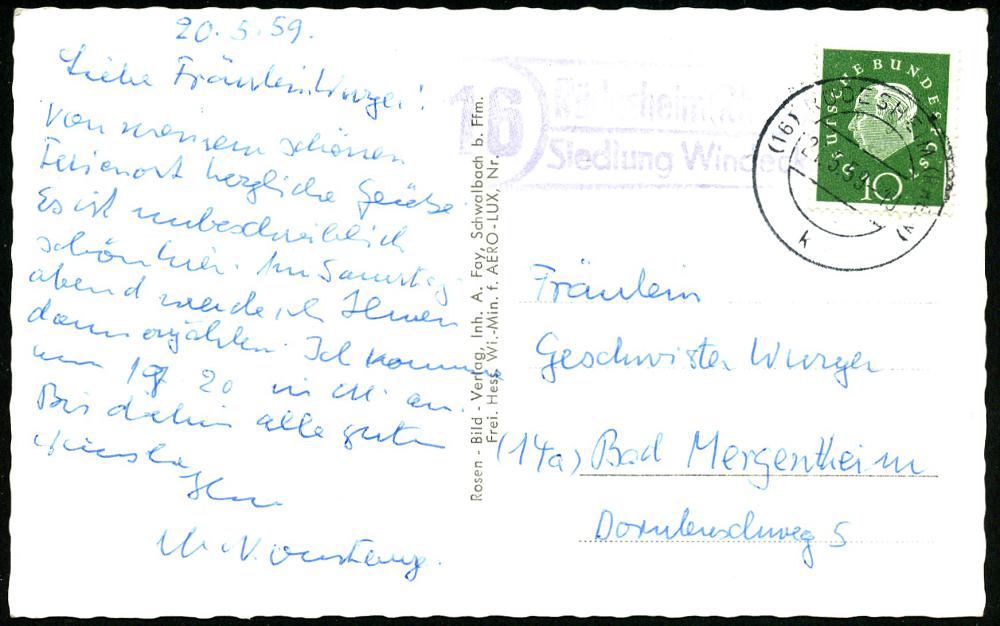 20.5.59.
Liebe Fräulein Wurger!
Von meinem schönen
Ferienort herzliche Grüße.
Es ist unbeschreiblich
schön hier. Am Samstag
abend werde ich Ihnen
dann erzählen. Ich komme
um 20 in M. an.
Bis dahin alle guten
Wünsche
Ihre
16
Siedlung Windeck
Rosen - Bild - Verlag, Inh. A. Fay, Schwalbach b. Ffm.
Frei. Hess. Wi.-Min. f. AERO-LUX, Nr.
DEUTSCHE BUNDESPOST
10
(16)
k
Fräulein
Geschwister Wurger
(14a) Bad Mergentheim
5